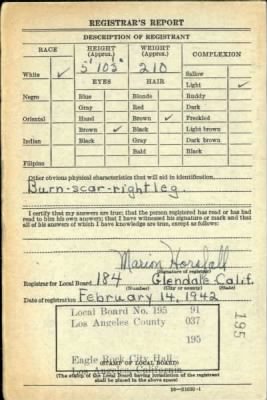 REGISTRAR'S REPORT
DESCRIPTION OF REGISTRANT
RACE HEIGHT (Approx.) WEIGHT (Approx.) COMPLEXION
White ✓ 5' 10½" 210 Sallow
EYES HAIR Light ✓
Negro Blue Blonde Ruddy
Gray Red Dark
Oriental Hazel Brown ✓ Freckled
Brown ✓ Black Light brown
Indian Black Gray Dark brown
Bald Black
Filipino
Other obvious physical characteristics that will aid in identification
Burn-scar-right leg.
I certify that my answers are true; that the person registered has read or has had
read to him his own answers; that I have witnessed his signature or mark and that
all of his answers of which I have knowledge are true, except as follows:
Marion Horsfall
(Signature of registrar)
Registrar for Local Board 184 Glendale Calif.
(Number) (City or county) (State)
Date of registration February 14, 1942
Local Board No. 195 91
Los Angeles County 037
195
Eagle Rock City Hall
Los Angeles, California
(STAMP OF LOCAL BOARD)
(The stamp of the Local Board having jurisdiction of the registrant
shall be placed in the above space)
195